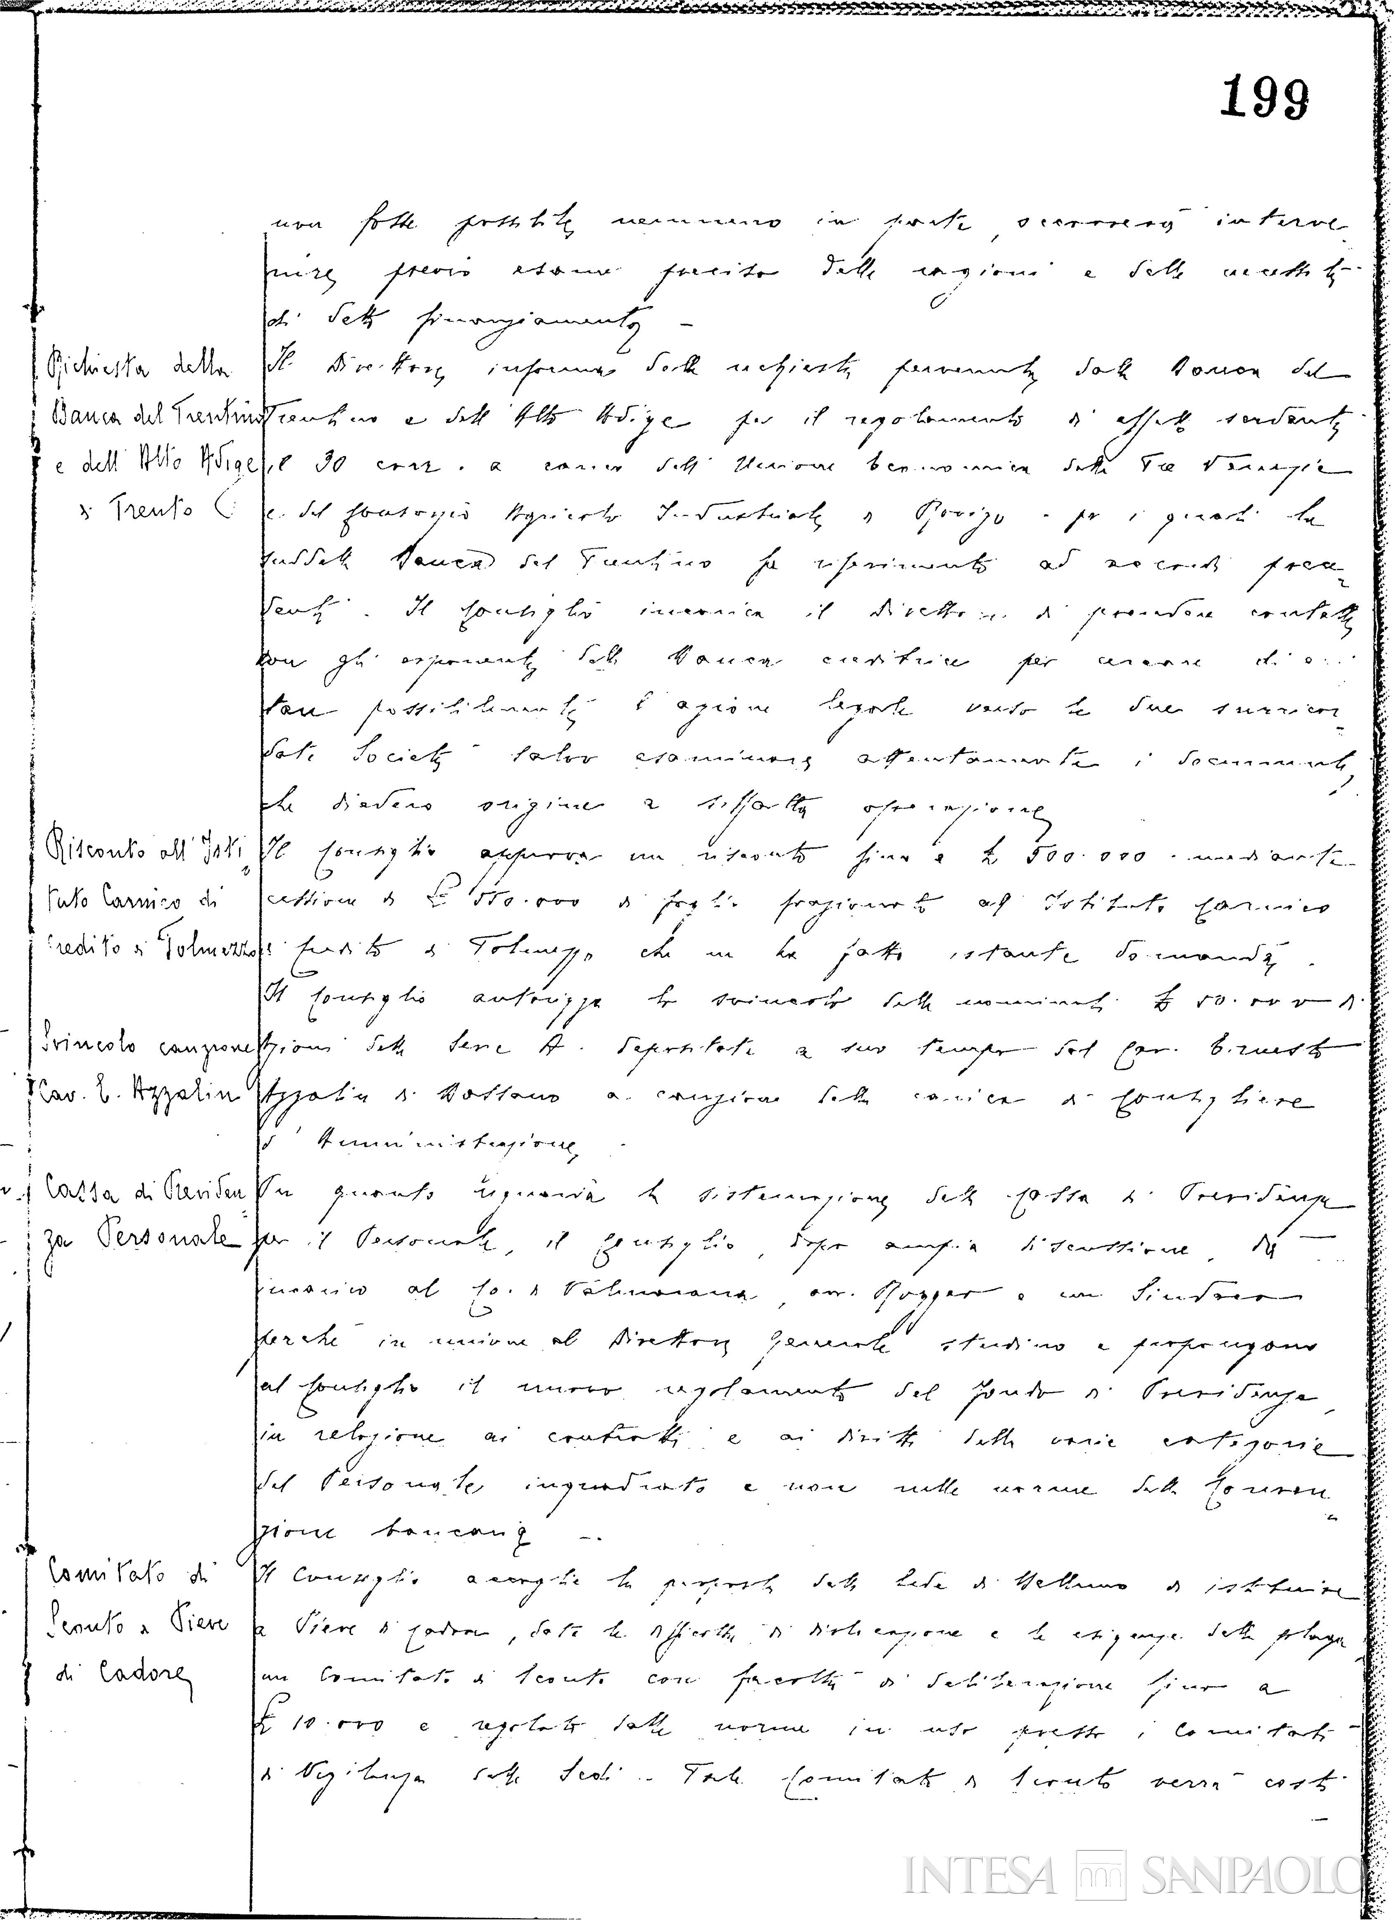 199
non fosse possibile nemmeno in parte, occorrerà interve-
nire previo esame preciso delle ragioni e delle necessità
di detto finanziamento -
Richiesta della
Banca del Trentino
e dell'Alto Adige
di Trento
Il Direttore informa della richiesta pervenuta dalla Banca del
Trentino e dell'Alto Adige per il regolamento di effetti scadenti
il 30 corr. a carico dell'Unione Economica delle Tre Venezie
e del Consorzio Agricolo Industriale di Rovigo - per i quali la
suddetta Banca del Trentino fa riferimento ad accordi prece-
denti. Il Consiglio incarica il Direttore di prendere contatto
con gli esponenti della Banca creditrice per cercare di evi
tare possibilmente l'azione legale verso le due surricor-
date Società salvo esaminare attentamente i documenti,
che diedero origine a siffatta operazione
Risconto all'Isti-
tuto Carnico di
Credito di Tolmezzo
Il Consiglio approva un risconto fino a £ 500.000 - mediante
cessione di £ 550.000 di foglio frazionato all'Istituto Carnico
di Credito di Tolmezzo che ne ha fatto istante domanda.
Svincolo cauzione
Cav. E. Azzalin
Il Consiglio autorizza lo svincolo delle nominali £ 50.000 di
azioni della Serie A. depositate a suo tempo dal Cav. Ernesto
Azzalin di Bassano a cauzione della carica di Consigliere
d'Amministrazione.
Cassa di Previden-
za Personale
In quanto riguarda la sistemazione della Cassa di Previdenza
per il Personale, il Consiglio, dopo ampia discussione, dà
incarico al Co. di Valmarana, avv. e un Sindaco
perché in unione al Direttore Generale studino e propongano
al Consiglio il nuovo regolamento del Fondo di Previdenza,
in relazione ai contratti e ai diritti delle varie categorie
del Personale inquadrato e non nelle norme della Conven-
zione bancaria -.
Comitato di
Sconto a Pieve
di Cadore
Il Consiglio accoglie la proposta della Sede di Belluno di istituire
a Pieve di Cadore, date le difficoltà di dislocazione e le esigenze della plaga,
un Comitato di Sconto con facoltà di deliberazione fino a
£ 10.000 e regolato dalle norme in uso presso i Comitati
di Vigilanza delle Sedi - Tale Comitato di Sconto verrà costi-
INTESA SANPAOLO